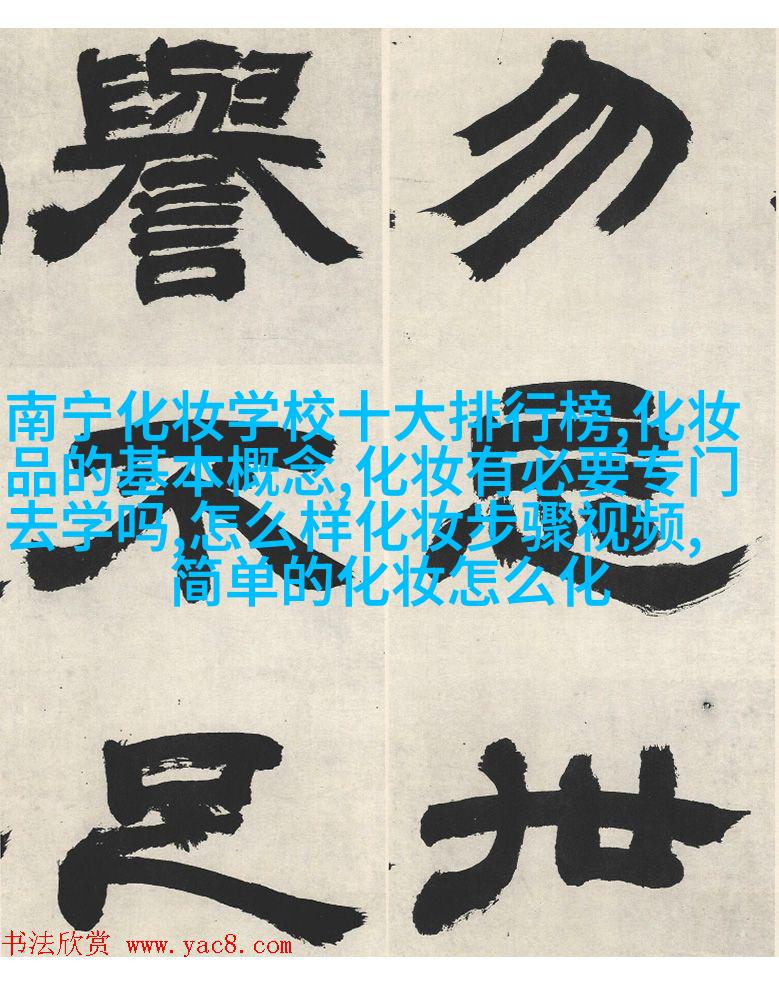 勿
世
譽
不
足
南宁化妆学校十大排行榜,化妆
品的基本概念,化妆有必要专门
去学吗,怎么样化妆步骤视频,
简单的化妆怎么化
书法欣赏 www.yac8.com